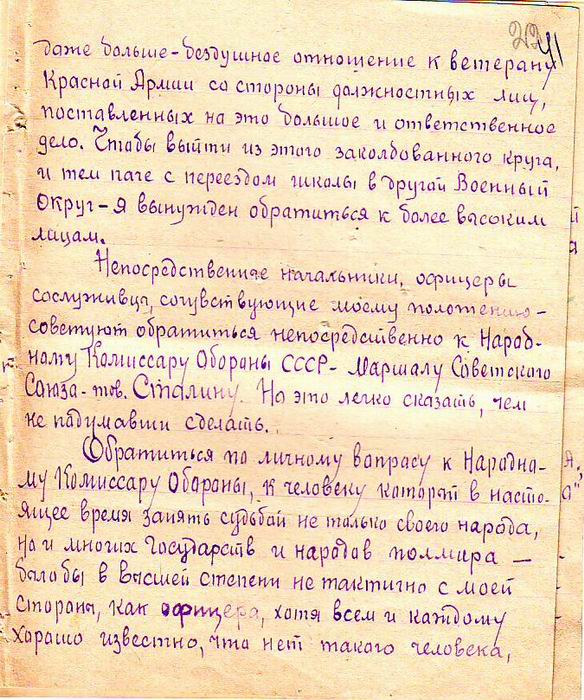 41
даже больше - бездушное отношение к ветерану
Красной Армии со стороны должностных лиц,
поставленных на это большое и ответственное
дело. Чтобы выйти из этого заколдованного круга,
и тем паче с переездом школы в другой Военный
Округ - я вынужден обратиться к более высоким
лицам.
Непосредственние начальники, офицеры
сослуживцы, сочувствующие моему положению -
советуют обратиться непосредственно к Народ-
ному Комиссару Обороны СССР - Маршалу Советского
Союза - тов. Сталину. Но это легко сказать, чем
не подумавши сделать.
Обратиться по личному вопросу к Народно-
му Комиссару Обороны, к человеку который в насто-
ящее время занять судьбой не только своего народа,
но и многих Государств и народов полмира —
было бы в высшей степени не тактично с моей
стороны, как офицера, хотя всем и каждому
хорошо известно, что нет такого человека,